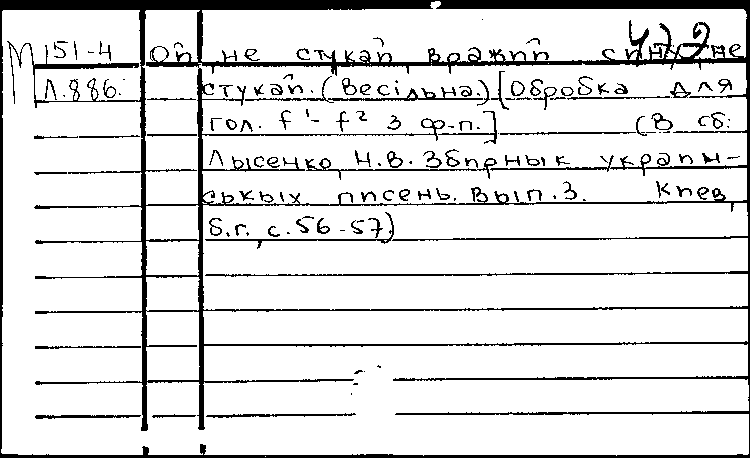 472
М 151-4 Ой, не стукай, вражий сину, не
Л.886. стукай. (Весільна.) [Обробка для
гол. f¹- f² з ф-п.] (В сб:
Лысенко, Н.В. Збирнык украин-
ськых писень. Вып.3. Киев,
б.г., с.56-57)